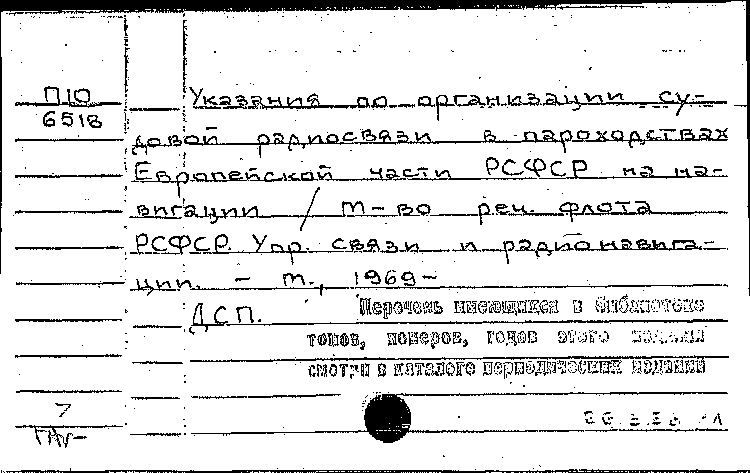 П10
6518
Указания по организации су-
довой радиосвязи в пароходствах
Европейской части РСФСР на на-
вигации / М-во реч. флота
РСФСР. Упр. связи и радионавига-
ции. - М., 1969-
ДСП.
Перечень имеющихся в библиотеке
томов, номеров, годов этого издания
смотри в каталоге периодических изданий
7